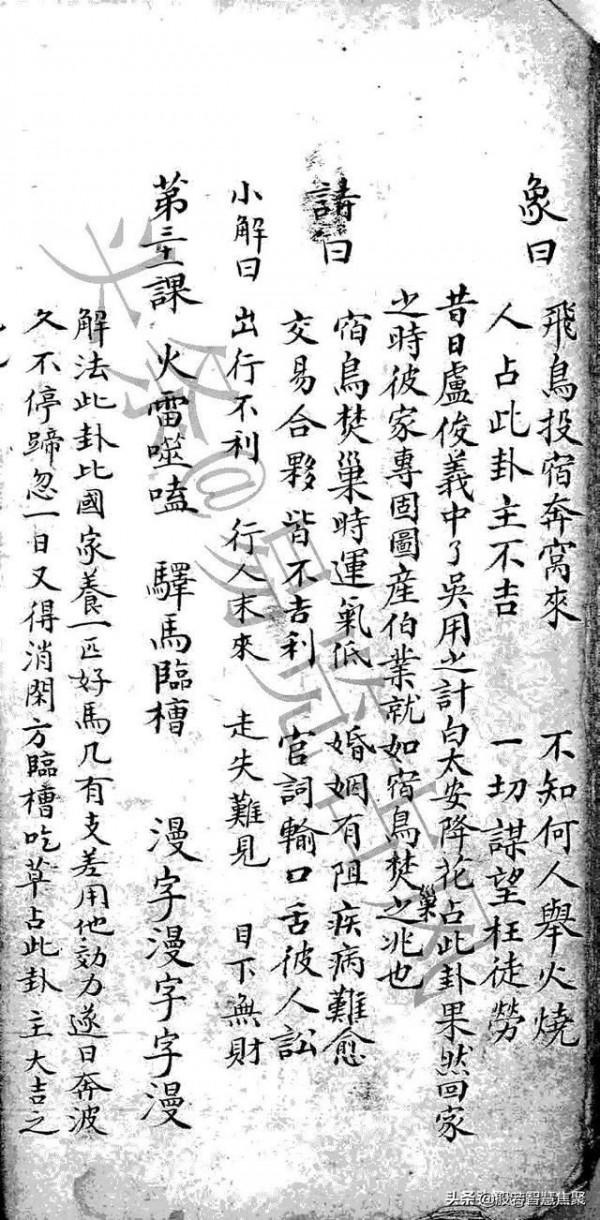 象曰 飛鳥投宿奔窩來 不知何人舉火燒
人占此卦主不吉 一切謀望枉徒勞
昔日盧俊義中了吳用之計白太安降花占此卦果然回家
之時彼家專固圖産伯業就如宿鳥焚巢之兆也
詩曰 宿鳥焚巢時運氣低 婚姻有阻疾病難愈
交易合夥皆不吉利 官詞輸口舌彼人訟
小解曰 出行不利 行人未來 走失難見 目下無財
第二十一課 火雷噬嗑 驛馬臨槽 漫字漫字字漫
解法此卦比國家養一匹好馬几有支差用他効力遂日奔波
久不停蹄忽一日又得消閑方臨槽吃草占此卦主大吉之
头条@易元占风
头条@般若智慧焦聚